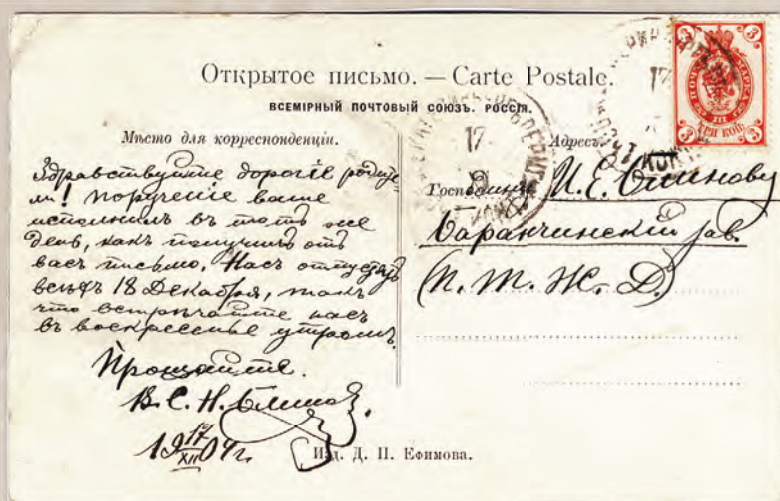 Открытое письмо. — Carte Postale.
ВСЕМІРНЫЙ ПОЧТОВЫЙ СОЮЗЪ. РОССІЯ.
Мѣсто для корреспонденціи.
Здравствуйте дорогіе родите-
ли! Порученіе ваше
исполнилъ въ тотъ же
день, какъ получилъ отъ
васъ письмо. Насъ отпустятъ
всѣхъ 18 Декабря, такъ
что встрѣчайте насъ
въ воскресенье утромъ.
Прощайте.
В. С. Н. Блинов.
19 17/XII 04 г.
Адресъ.
Господину И. Е. Блинову
Баранчинскій зав.
(П. Т. Ж. Д.)
3 3
ПОЧТОВАЯ МАРКА
ТРИ КОП.
3 3
17
17
Изд. Д. П. Ефимова.